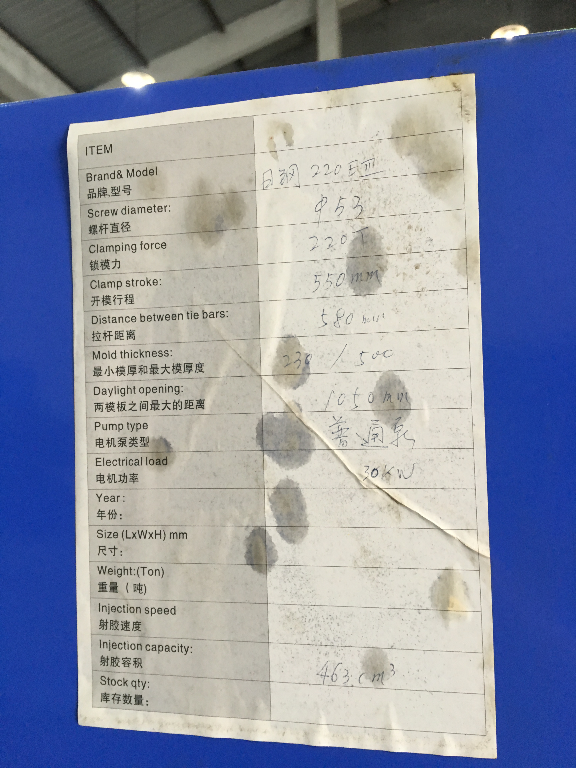 ITEM
Brand& Model
品牌,型号
日钢 220EⅢ
Screw diameter:
螺杆直径
φ53
Clamping force
锁模力
220T
Clamp stroke:
开模行程
550mm
Distance between tie bars:
拉杆距离
580mm
Mold thickness:
最小模厚和最大模厚度
230 / 500
Daylight opening:
两模板之间最大的距离
1050mm
Pump type
电机泵类型
普通泵
Electrical load
电机功率
30KW
Year:
年份:
Size (LxWxH) mm
尺寸:
Weight:(Ton)
重量(吨)
Injection speed
射胶速度
Injection capacity:
射胶容积
463cm³
Stock qty:
库存数量: